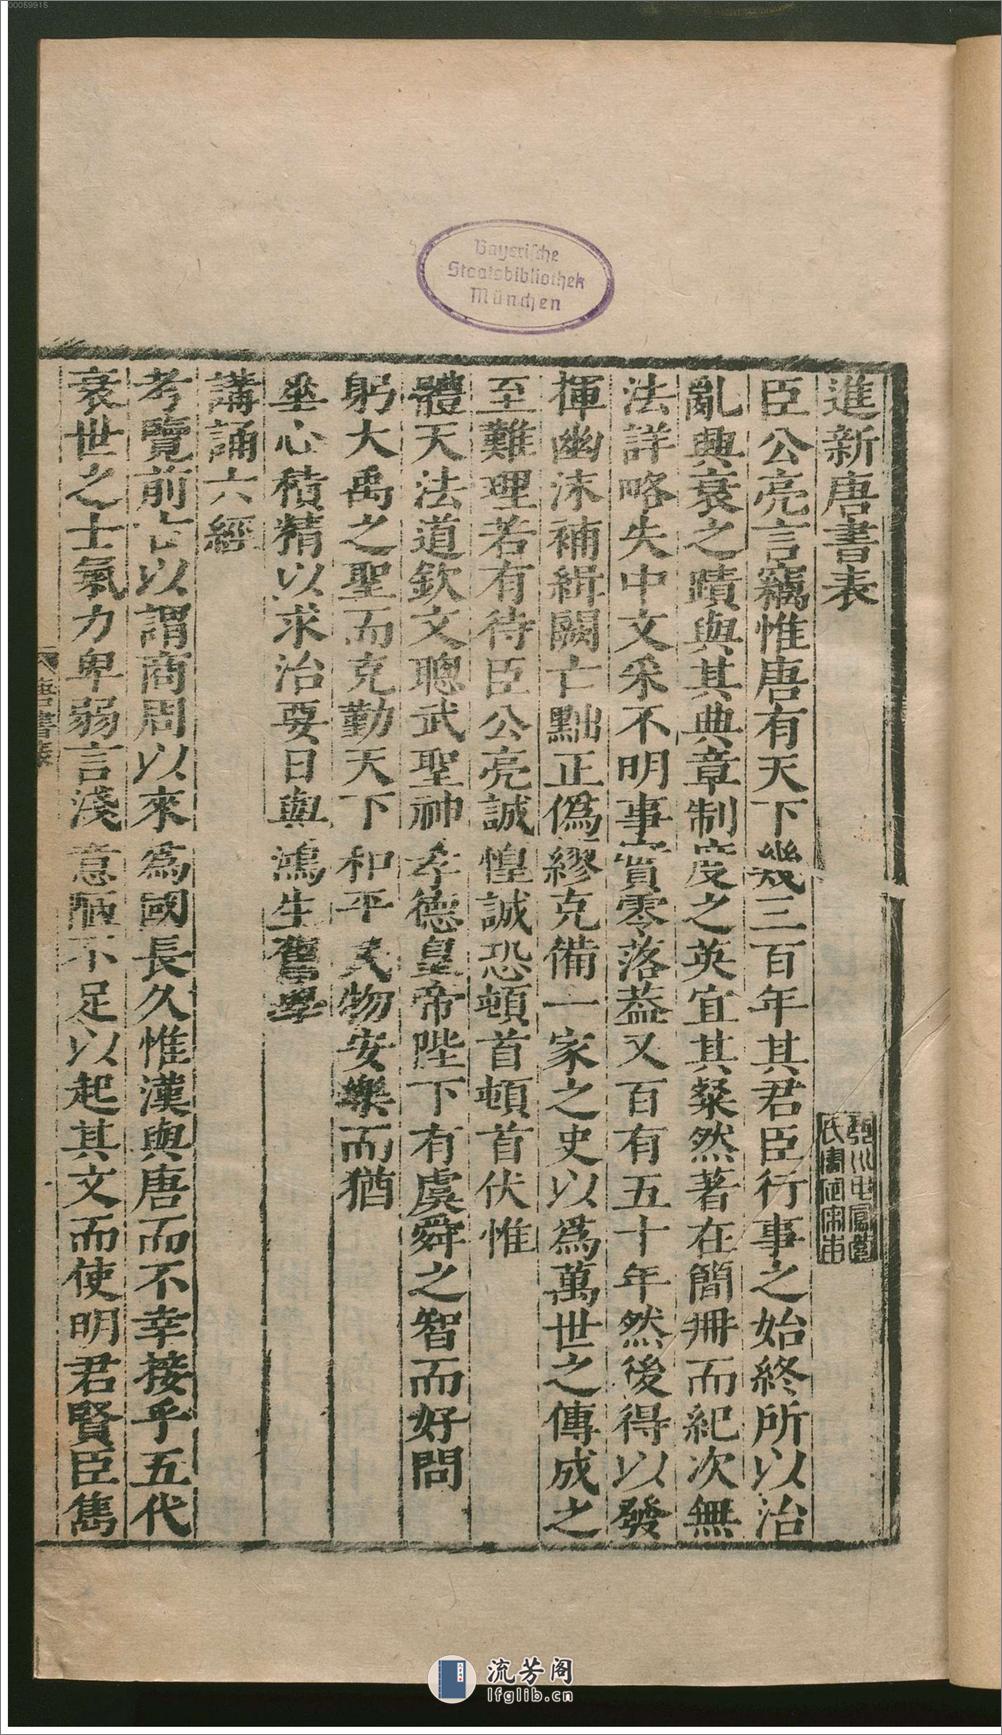 00059915
Bayerische
Staatsbibliothek
München
進新唐書表
臣公亮言竊惟唐有天下幾三百年其君臣行事之始終所以治
亂興衰之蹟與其典章制度之英宜其粲然著在簡冊而紀次無
法詳略失中文采不明事實零落蓋又百有五十年然後得以發
揮幽沬補緝闕亡黜正偽繆克備一家之史以為萬世之傳成之
至難理若有待臣公亮誠惶誠恐頓首頓首伏惟
體天法道欽文聰武聖神孝德皇帝陛下有虞舜之智而好問
躬大禹之聖而克勤天下和平民物安樂而猶
垂心積精以求治要日與鴻生舊學
講誦六經
考覽前古以謂商周以來為國長久惟漢與唐而不幸接乎五代
衰世之士氣力卑弱言淺意陋不足以起其文而使明君賢臣雋
唐書表
流芳阁
lfglib.cn